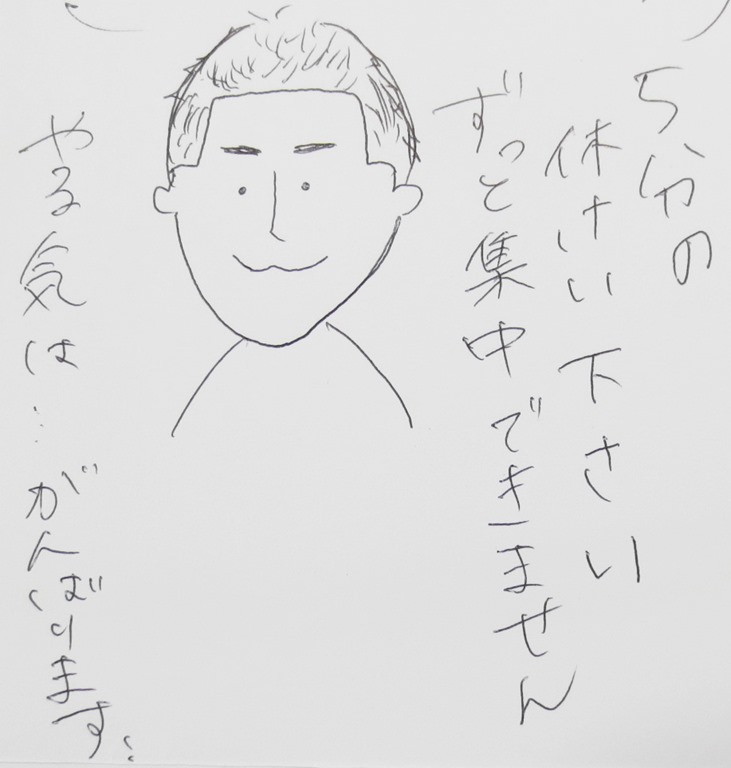 5分の
休けい下さい
ずっと集中できません
やる気は…がんばります: